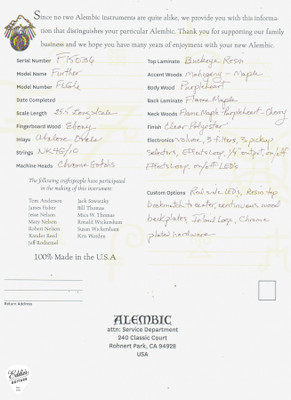 Since no two Alembic instruments are quite alike, we provide you with this informa-
tion that distinguishes your particular Alembic. Thank you for supporting our family
business and we hope you have many years of enjoyment with your new Alembic.
Serial Number F15036
Model Name Further
Model Number FLG6
Date Completed
Scale Length 25.5" Long scale
Fingerboard Wood Ebony
Inlays Abalone Ovals
Strings
Machine Heads Chrome Gotohs
The following craftspeople have participated
in the making of this instrument:
Tom Anderson Jack Sawusky
James Fisher Bill Thomas
Jesse Nelson Mica W. Thomas
Mary Nelson Ronald Wickersham
Robert Nelson Susan Wickersham
Xander Reed Kris Worden
Jeff Restarend
100% Made in the U.S.A
Top Laminate Buckeye, Resin
Accent Woods Mahogany - Maple
Body Wood Purpleheart
Back Laminate Flame Maple
Neck Woods Flame Maple Purpleheart - Cherry
Finish Clear Polyester
Electronics volume, 3 filters, 3 pickup
selectors, Effects Loop, 1/4" output, on/off
Effects Loop, on/off LEDs
Custom Options Red side LEDs, Resin top
bookmatch to center, continuous wood
backplates, Inlaid Logo, Chrome
plated hardware
Return Address
ALEMBIC
attn: Service Department
240 Classic Court
Rohnert Park, CA 94928
USA
Eddie's
GUITARS